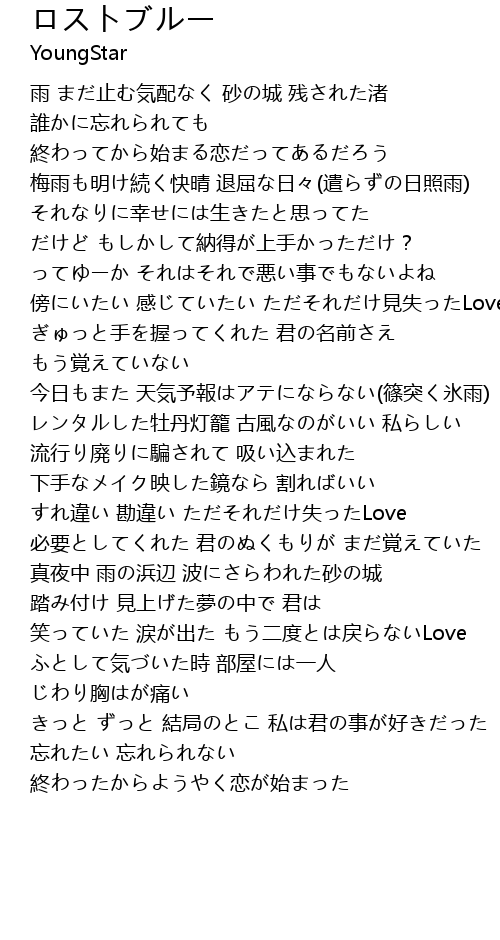 ロストブルー
YoungStar
雨 まだ止む気配なく 砂の城 残された渚
誰かに忘れられても
終わってから始まる恋だってあるだろう
梅雨も明け続く快晴 退屈な日々(遣らずの日照雨)
それなりに幸せには生きたと思ってた
だけど もしかして納得が上手かっただけ？
ってゆーか それはそれで悪い事でもないよね
傍にいたい 感じていたい ただそれだけ見失ったLove
ぎゅっと手を握ってくれた 君の名前さえ
もう覚えていない
今日もまた 天気予報はアテにならない(篠突く氷雨)
レンタルした牡丹灯籠 古風なのがいい 私らしい
流行り廃りに騙されて 吸い込まれた
下手なメイク映した鏡なら 割ればいい
すれ違い 勘違い ただそれだけ失ったLove
必要としてくれた 君のぬくもりが まだ覚えていた
真夜中 雨の浜辺 波にさらわれた砂の城
踏み付け 見上げた夢の中で 君は
笑っていた 涙が出た もう二度とは戻らないLove
ふとして気づいた時 部屋には一人
じわり胸はが痛い
きっと ずっと 結局のとこ 私は君の事が好きだった
忘れたい 忘れられない
終わったからようやく恋が始まった